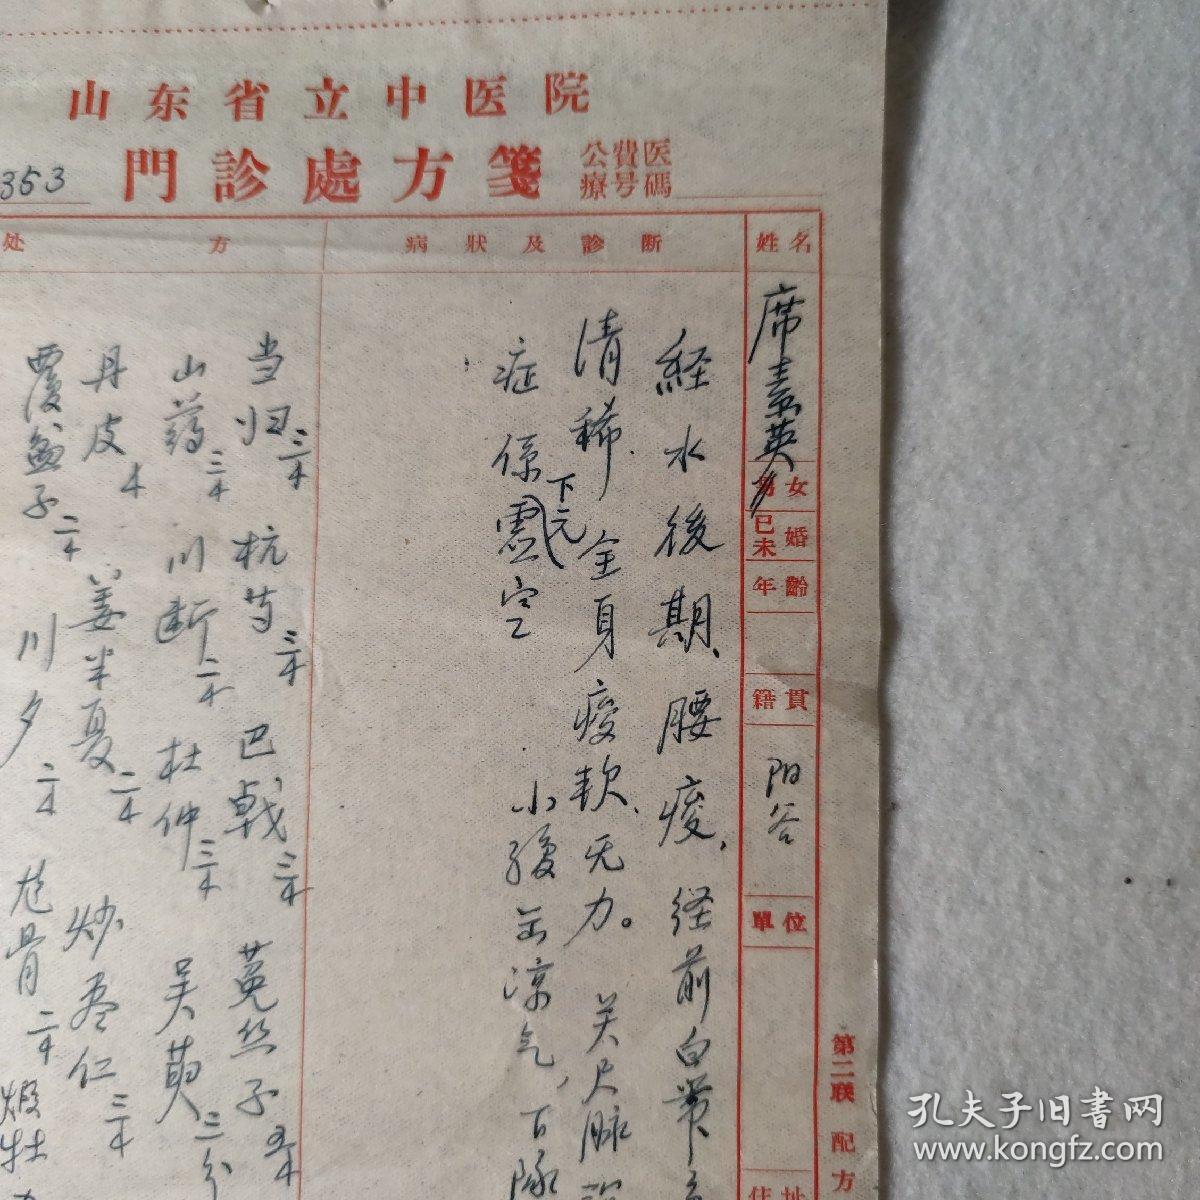 山东省立中医院
353
門診處方箋
公費医
療号碼
姓名
席素英
男女
已未婚
年齡
籍貫
阳谷
單位
住址
病狀及診断
経水後期、腰痠、経前白帶
清稀.全身痠軟、无力。关尺脉
症係下元虛空
小腹
凉气、
处方
当归三木 杭芍三木 巴戟三木 菟丝子
山药三木 川断二木 杜仲三木 吴萸三分
丹皮木 姜半夏二木 炒枣仁三木
覆盆子二木 川夕二木 龙骨二木 煅牡
第二联 配方
孔夫子旧书网
www.kongfz.com